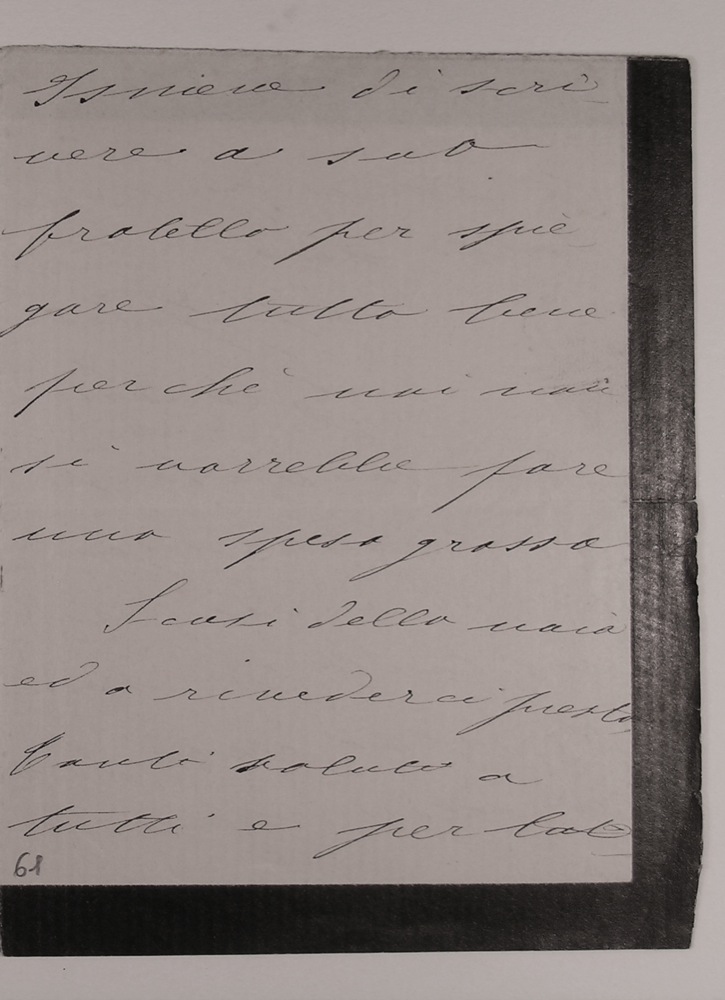 Ismene di scri-
vere a suo
fratello per spie
gare tutto bene
perchè noi non
si vorrebbe fare
una spesa grossa
Scusi della noia
ed a rivederci presto
Tanti saluti a
tutti e per
61